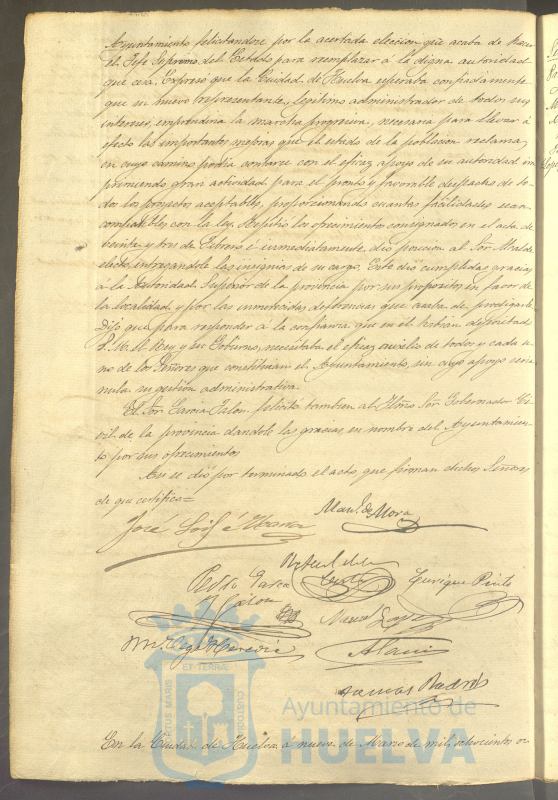 Ayuntamiento felicitandose por la acertada eleccion que acaba de hacer
el Jefe Supremo del Estado para reemplazar á la digna autoridad
que cesa. Expresó que la Ciudad de Huelva esperaba confiadamente
que su nuevo representante, legítimo administrador de todos sus
intereses, emprendería la marcha progresiva, necesaria para llevar á
efecto las importantes mejoras que el estado de la poblacion reclama,
en cuyo camino podía contarse con el eficaz apoyo de su autoridad im
primiendo gran actividad para el pronto y favorable despacho de to-
dos los proyectos aceptables, proporcionando cuantas facilidades sean
compatibles con la ley. Repitió los ofrecimientos consignados en el acta de
veinte y tres de Febrero é inmediatamente dio posesion al Sor. Alcalde
electo entregandole las insignias de su cargo. Este dio cumplidas gracias
á la Autoridad Superior de la provincia por sus propositos en favor de
la localidad y por las inmerecidas deferencias que acaba de prodigarle
Dijo que para responder á la confianza que en el habian depositado
S. M. el Rey y su Gobierno, necesitaba el eficaz auxilio de todos y cada u-
no de los Señores que constituian el Ayuntamiento, sin cuyo apoyo seria
nula su gestion administrativa.
El Sor. Garcia Jalon felicitó tambien al Ylmo. Sor. Gobernador Ci-
vil de la provincia dandole las gracias en nombre del Ayuntamien-
to por sus ofrecimientos
Asi se dió por terminado el acto, que firman dichos Señores
de que certifico=
Manl. de Mora
José
Enrique Pinto
Pedro Garcia
Jalon
Lopez
Tomás
ET TERRÆ
PORTUS MARIS
CUSTODIA
Ayuntamiento de
HUELVA
En la Ciudad de Huelva á nueve de Marzo de mil ochocientos o-